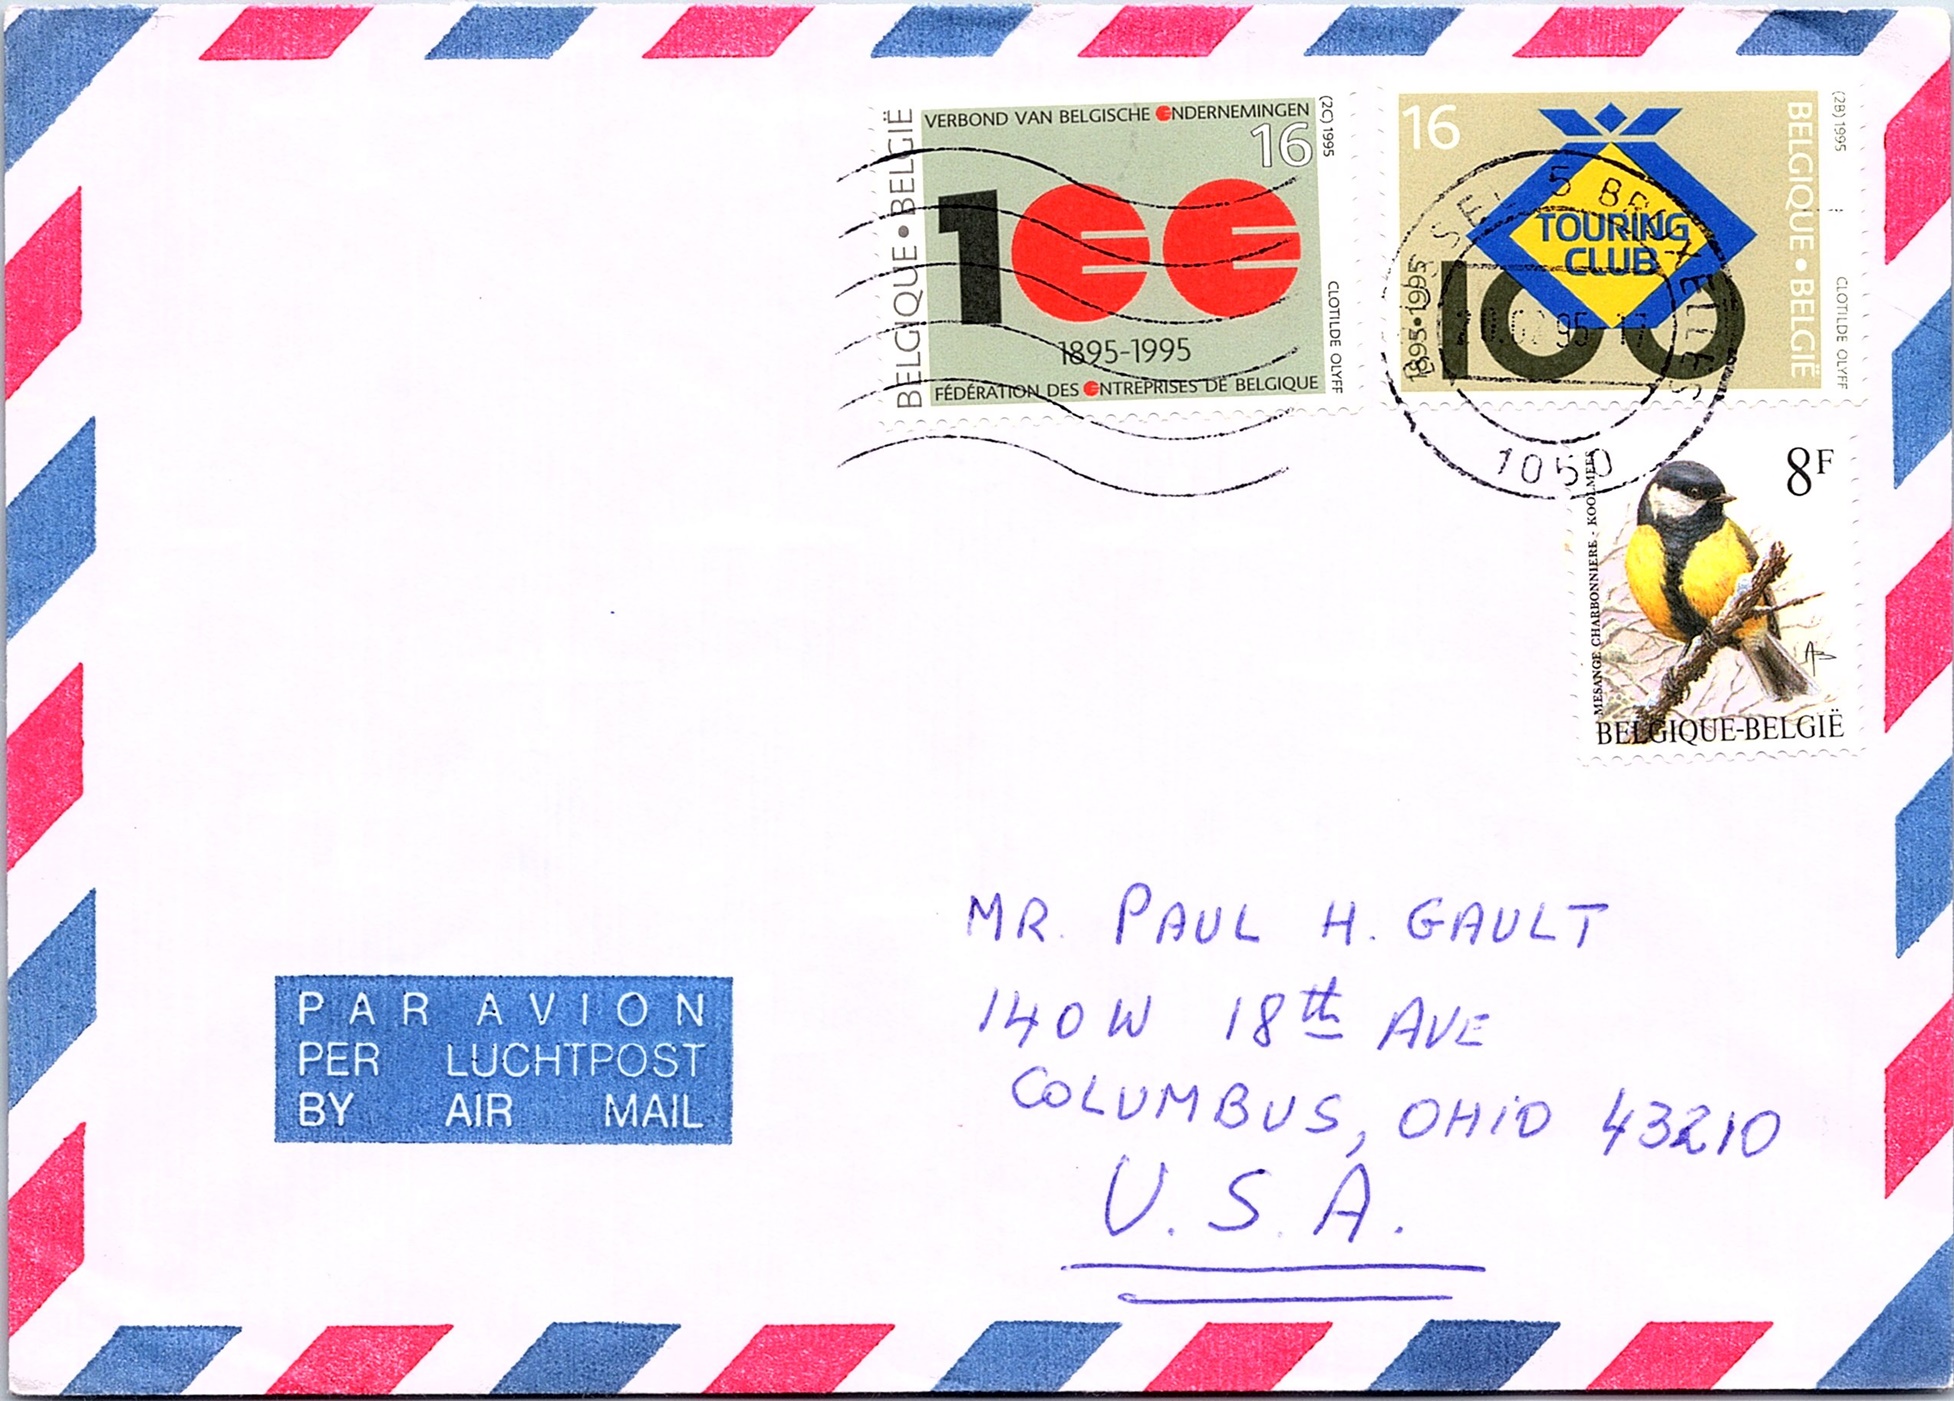 VERBOND VAN BELGISCHE ONDERNEMINGEN
16
BELGIQUE • BELGIË
(2C) 1995
CLOTILDE OLYFF
100
1895-1995
FÉDÉRATION DES ENTREPRISES DE BELGIQUE
16
BELGIQUE • BELGIË
(2B) 1995
CLOTILDE OLYFF
TOURING
CLUB
100
1895•1995
5 BRUXELLES
95-17
1050
8F
MESANGE CHARBONNIERE - KOOLMEES
AB
BELGIQUE-BELGIË
MR. PAUL H. GAULT
140 W 18th AVE
COLUMBUS, OHIO 43210
U.S.A.
PAR AVION
PER LUCHTPOST
BY AIR MAIL